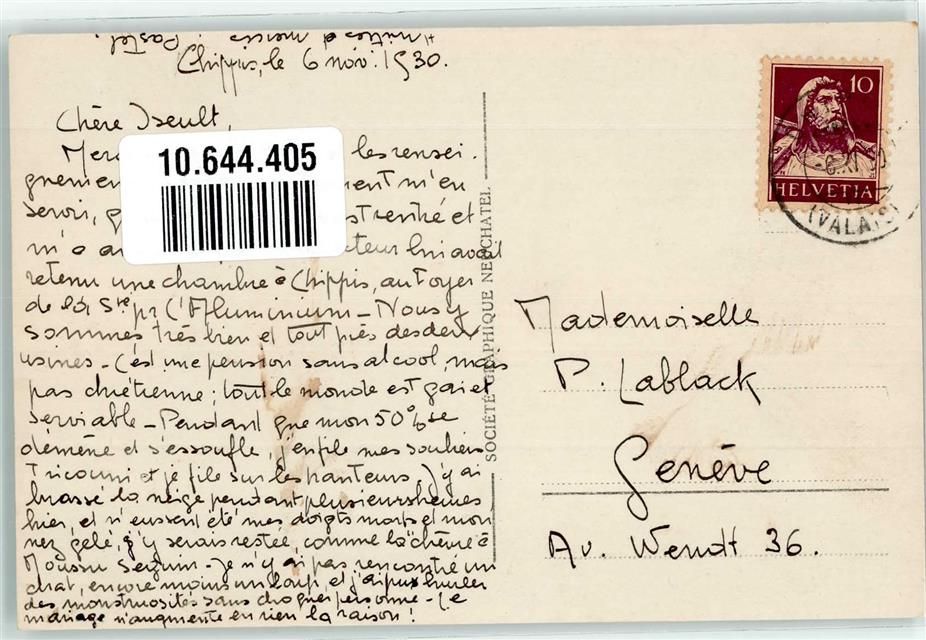 Amitiés d
Pastel.
Chippis, le 6 nov. 1930.
Chère Iseult,
les rensei-
gnemen ment m'en
servir, st rentré et
m'a cteur lui avait
retenu une chambre à Chippis, au foyer
de la Sté pr l'Aluminium - Nous y
sommes très bien et tout près des deux
usines - C'est une pension sans alcool, mais
pas chrétienne ; tout le monde est gai et
serviable - Pendant que mon 50% se
démène et s'essouffle, j'enfile mes souliers
Tricouni et je file sur les hauteurs. J'y ai
brassé la neige pendant plusieurs heures
hier, et n'eussent été mes doigts morts et mon
nez gelé, j'y serais restée, comme la chèvre à
Moussu Seguin - Je n'y ai pas rencontré un
chat, encore moins un loup, et j'ai pu hurler
des monstruosités sans choquer personne - Le
mariage n'augmente en rien la raison !
10.644.405
SOCIÉTÉ GRAPHIQUE NEUCHATEL
10
HELVETIA
(VALAIS)
Mademoiselle
P. Lablack
Genève
Av. Wendt 36.